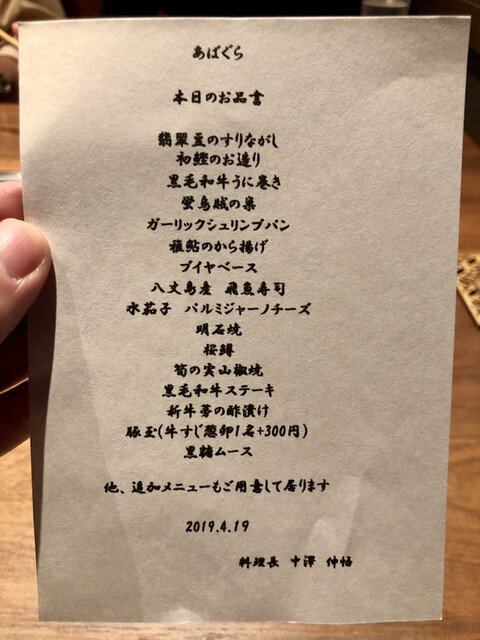 あばぐら
本日のお品書
翡翠豆のすりながし
初鰹のお造り
黒毛和牛うに巻き
蛍烏賊の巣
ガーリックシュリンプパン
稚鮎のから揚げ
ブイヤベース
八丈島産 飛魚寿司
水茄子 パルミジャーノチーズ
明石焼
桜鱒
筍の実山椒焼
黒毛和牛ステーキ
新牛蒡の酢漬け
豚玉(牛すじ葱卵1名+300円)
黒糖ムース
他、追加メニューもご用意して居ります
2019.4.19
料理長 中澤 仲悟